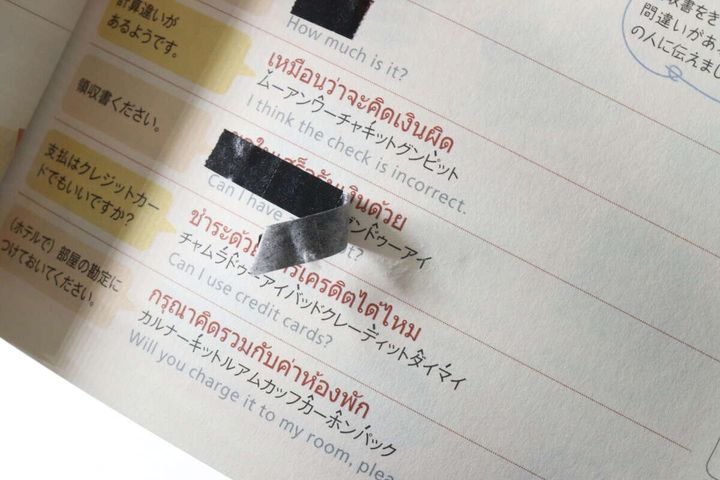 How much is it?
計算違いが
あるようです。
เหมือนว่าจะคิดเงินผิด
ムーアンウーチャキットグンピット
I think the check is incorrect.
領収書ください。
เงินด้วย
ンドゥーアイ
Can I have
t?
支払はクレジットカー
ドでもいいですか?
ชำระด้วย
รเครดิตได้ไหม
チャムラドゥーアイバッドクレーディットダイマイ
Can I use credit cards?
(ホテルで) 部屋の勘定に
つけておいてください。
กรุณาคิดรวมกับค่าห้องพัก
カルナーキットルアムカップカーホンパック
Will you charge it to my room,
収書をき
間違いがあ
の人に伝えまし